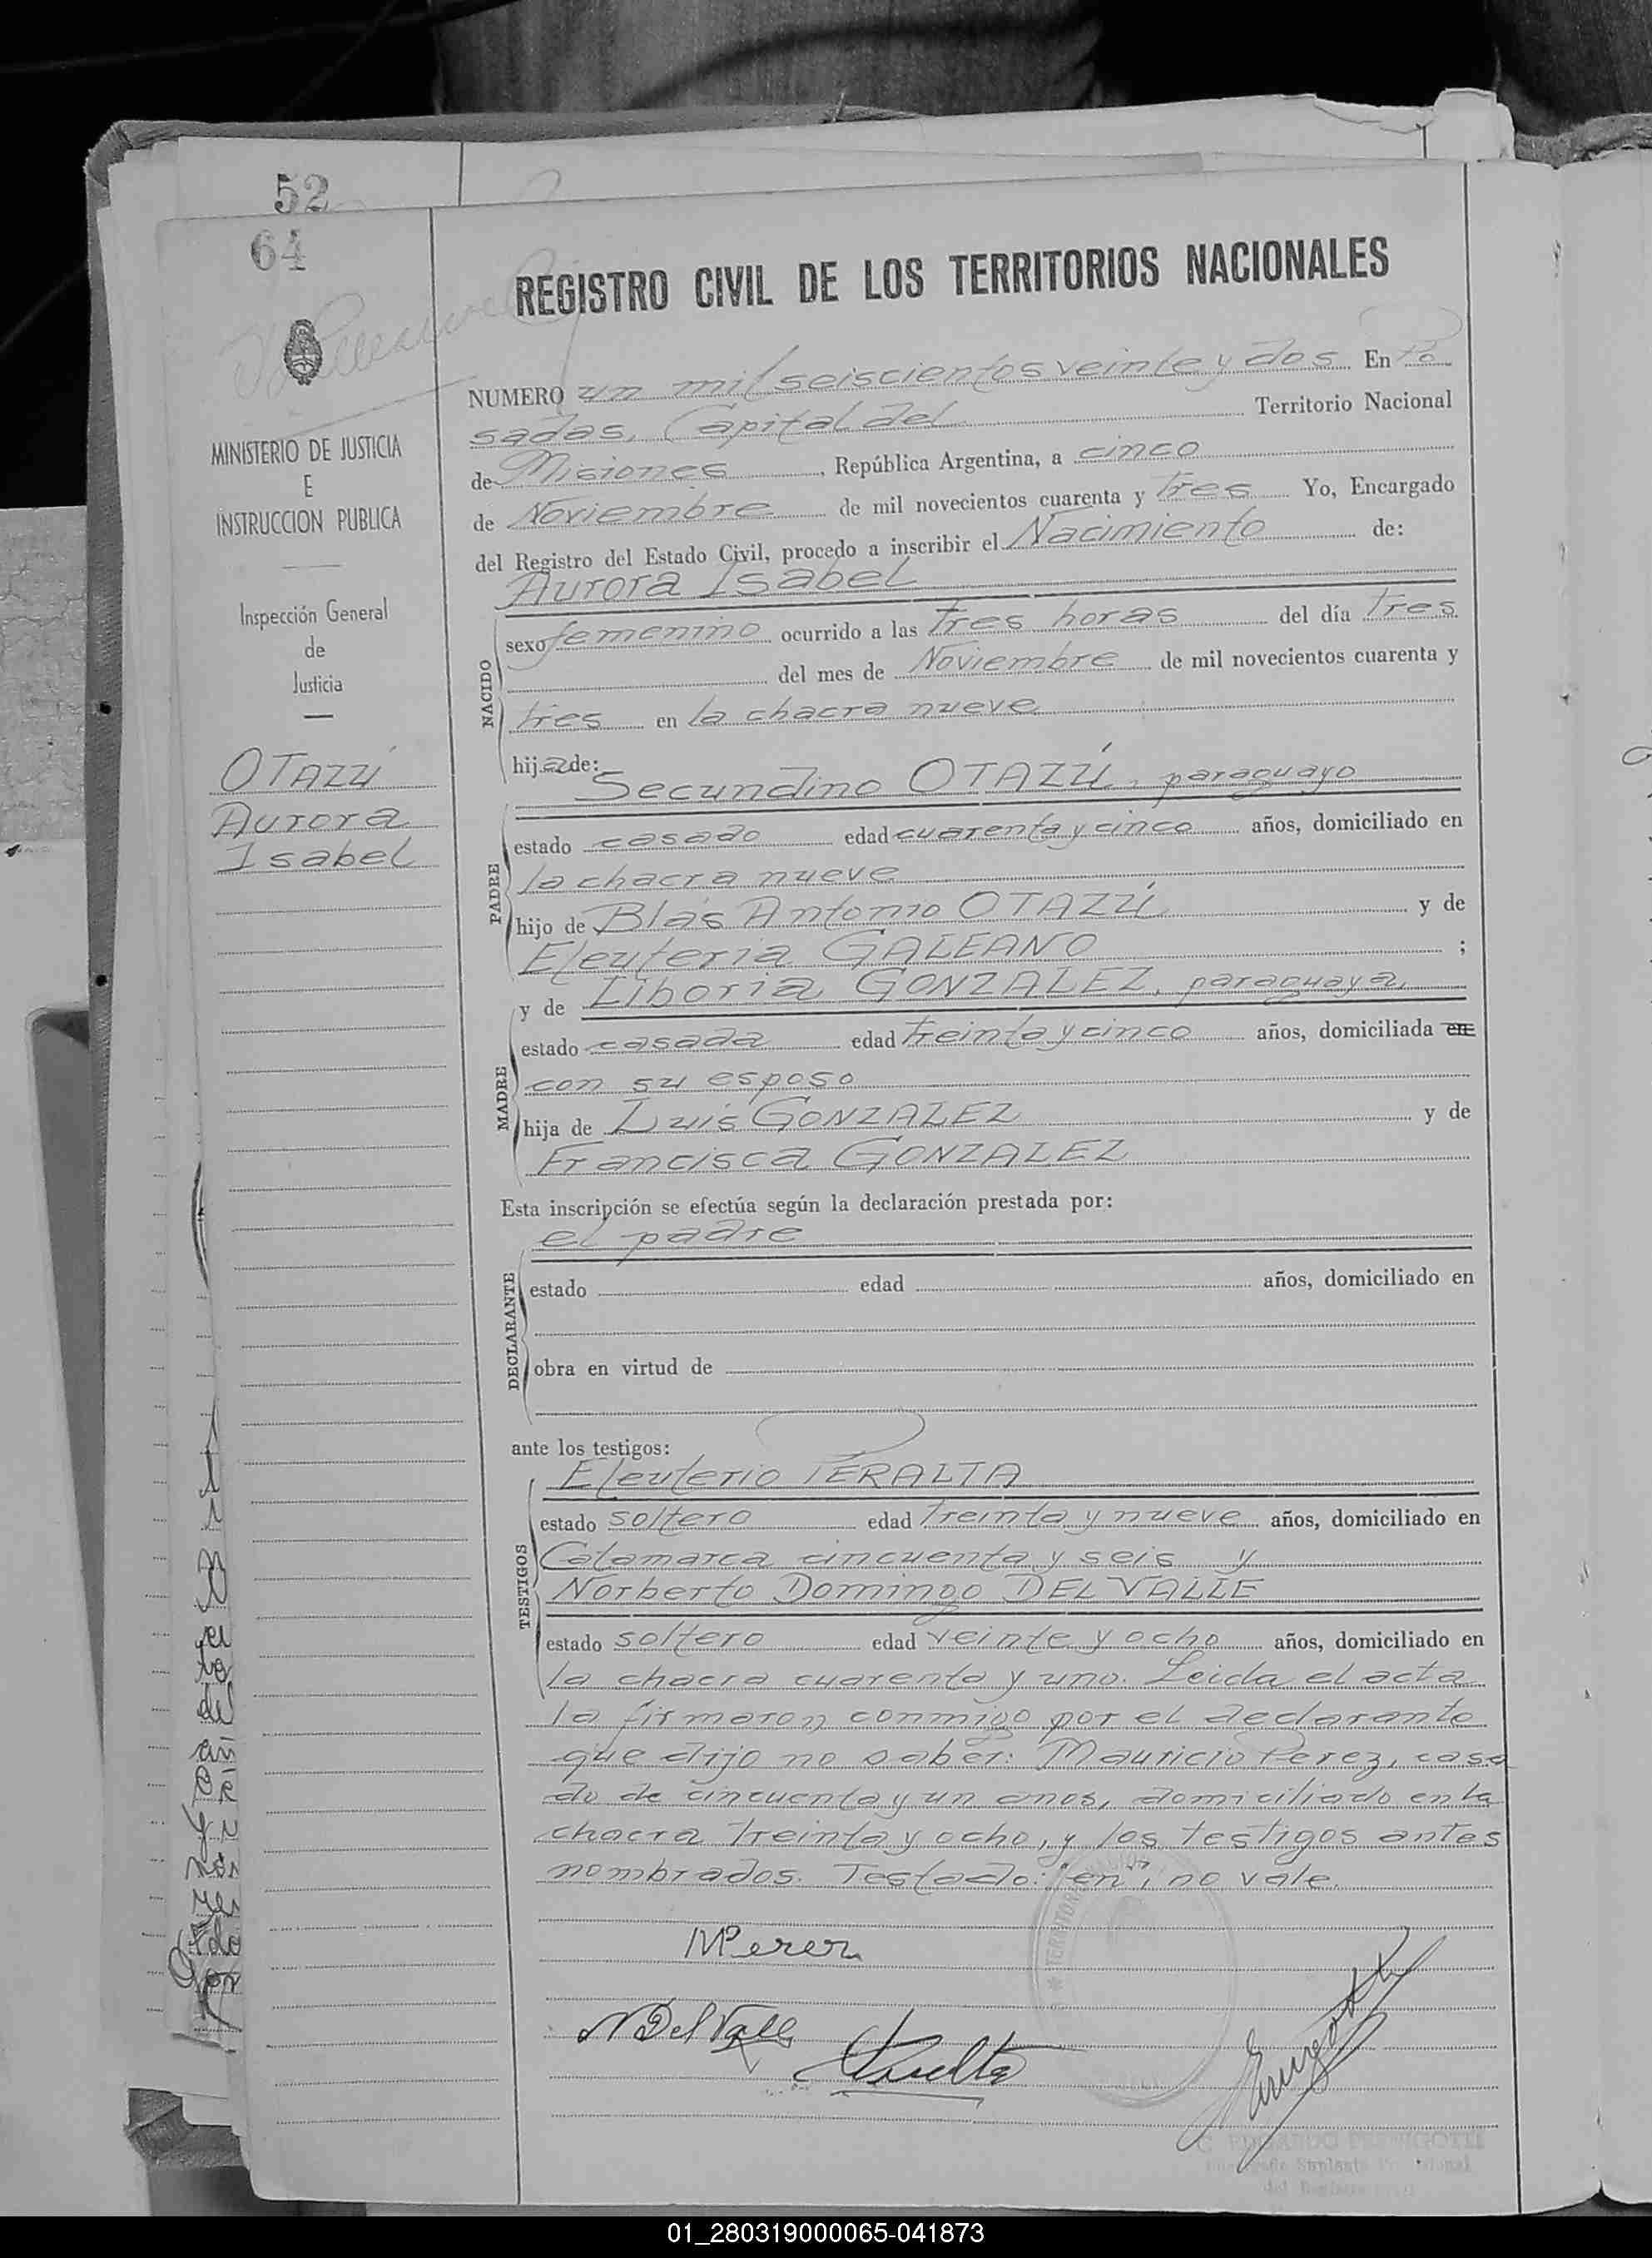 52
64
REGISTRO CIVIL DE LOS TERRITORIOS NACIONALES
MINISTERIO DE JUSTICIA
E
INSTRUCCION PUBLICA
Inspección General
de
Justicia
OTAZÚ
Aurora
Isabel
NUMERO un mil seiscientos veinte y dos En Po
sadas, Capital del Territorio Nacional
de Misiones, República Argentina, a cinco
de Noviembre de mil novecientos cuarenta y tres Yo, Encargado
del Registro del Estado Civil, procedo a inscribir el Nacimiento de:
Aurora Isabel
NACIDO
sexo femenino ocurrido a las tres horas del día tres
del mes de Noviembre de mil novecientos cuarenta y
tres en la chacra nueve
hija de:
Secundino OTAZÚ, paraguayo
PADRE
estado casado edad cuarenta y cinco años, domiciliado en
la chacra nueve
hijo de Blás Antonio OTAZÚ y de
Eleuteria GALEANO ;
y de Liboria GONZALEZ, paraguaya,
MADRE
estado casada edad treinta y cinco años, domiciliada en
con su esposo
hija de Luis GONZALEZ y de
Francisca GONZALEZ
Esta inscripción se efectúa según la declaración prestada por:
el padre
DECLARANTE
estado edad años, domiciliado en
obra en virtud de
ante los testigos:
Eleuterio PERALTA
TESTIGOS
estado soltero edad treinta y nueve años, domiciliado en
Catamarca cincuenta y seis y
Norberto Domingo DEL VALLE
estado soltero edad veinte y ocho años, domiciliado en
la chacra cuarenta y uno. Leida el acta
la firmaron conmigo por el declarante
que dijo no saber: Mauricio Perez, casa
do de cincuenta y un anos, domiciliado en la
chacra treinta y ocho, y los testigos antes
nombrados. Testado: "en", no vale.
MPerez
N Del Valle
01_280319000065-041873